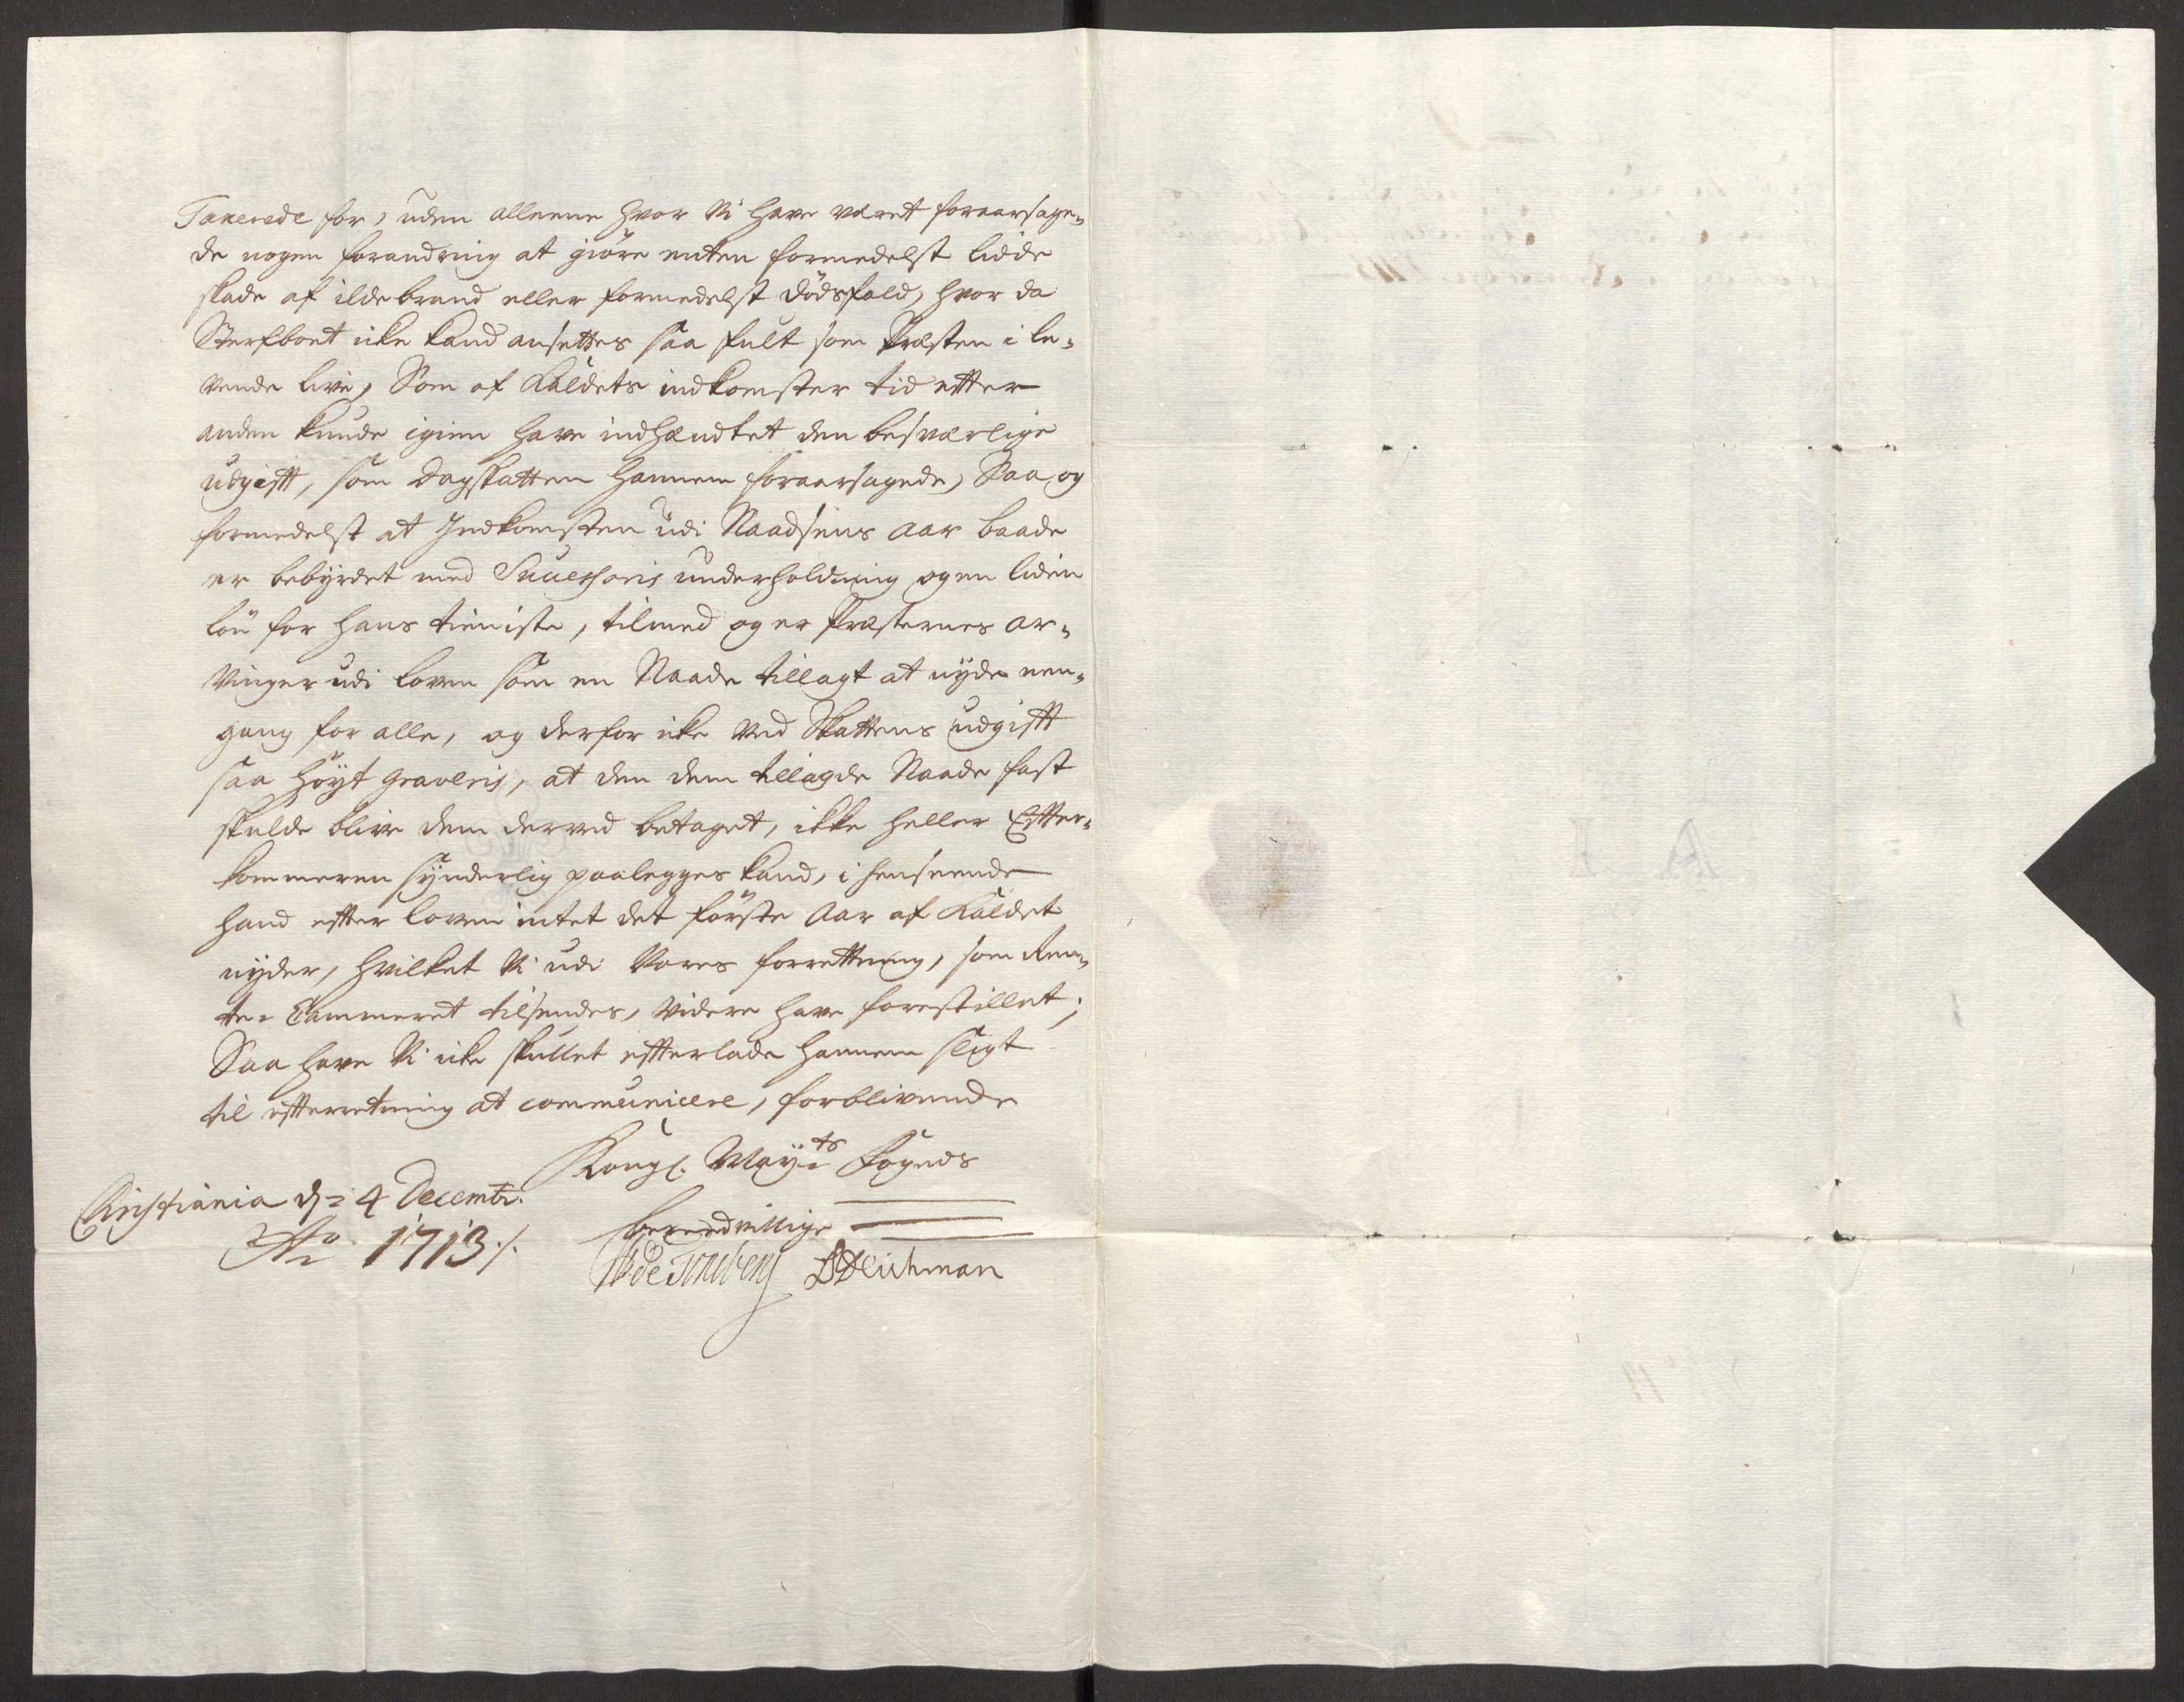 Taxerede for, uden alleene hvor Vi have været foraarsage-
de nogen forandring at giöre enten formedelst lidde
skade af ildebrand eller formedelst dödsfald, hvor da
Sterfboet icke kand ansettes saa fult som Præsten i le-
vende live, Som af Kaldets indkomster tid efter
anden kunde igien have indhændtet den besværlige
udgifft, som Dagskatten hannem foraarsagede, Saa og
formedelst at Indkomsten udi Naadsens Aar baade
er bebyrdet med Successoris underholdning og en liden
lön for hans tieniste, tilmed og er Præsternes Ar-
vinger udi loven som en Naade tillagt at nyde een-
gang for alle, og derfor icke ved Skattens udgifft
saa höyt graveris, at den dem tillagde Naade fast
skulde blive dem derved betaget, ikke heller Effter-
kommeren synderlig paalegges kand, i henseende
hand effter loven intet det förste Aar af Kaldet
nyder, hvilket Vi udi Vores forrettning, som Ren-
te-Cammeret tilsendes, videre have forestillet;
Saa have Vi icke skullet effterlade hannem sligt
til effterretning at communicere, forblivende
Kongl. Mayts Fogeds
Christiania d= 4 Decembr.
beredvillige
Ao 1713 ./.
WdeTonsberg BDeichman